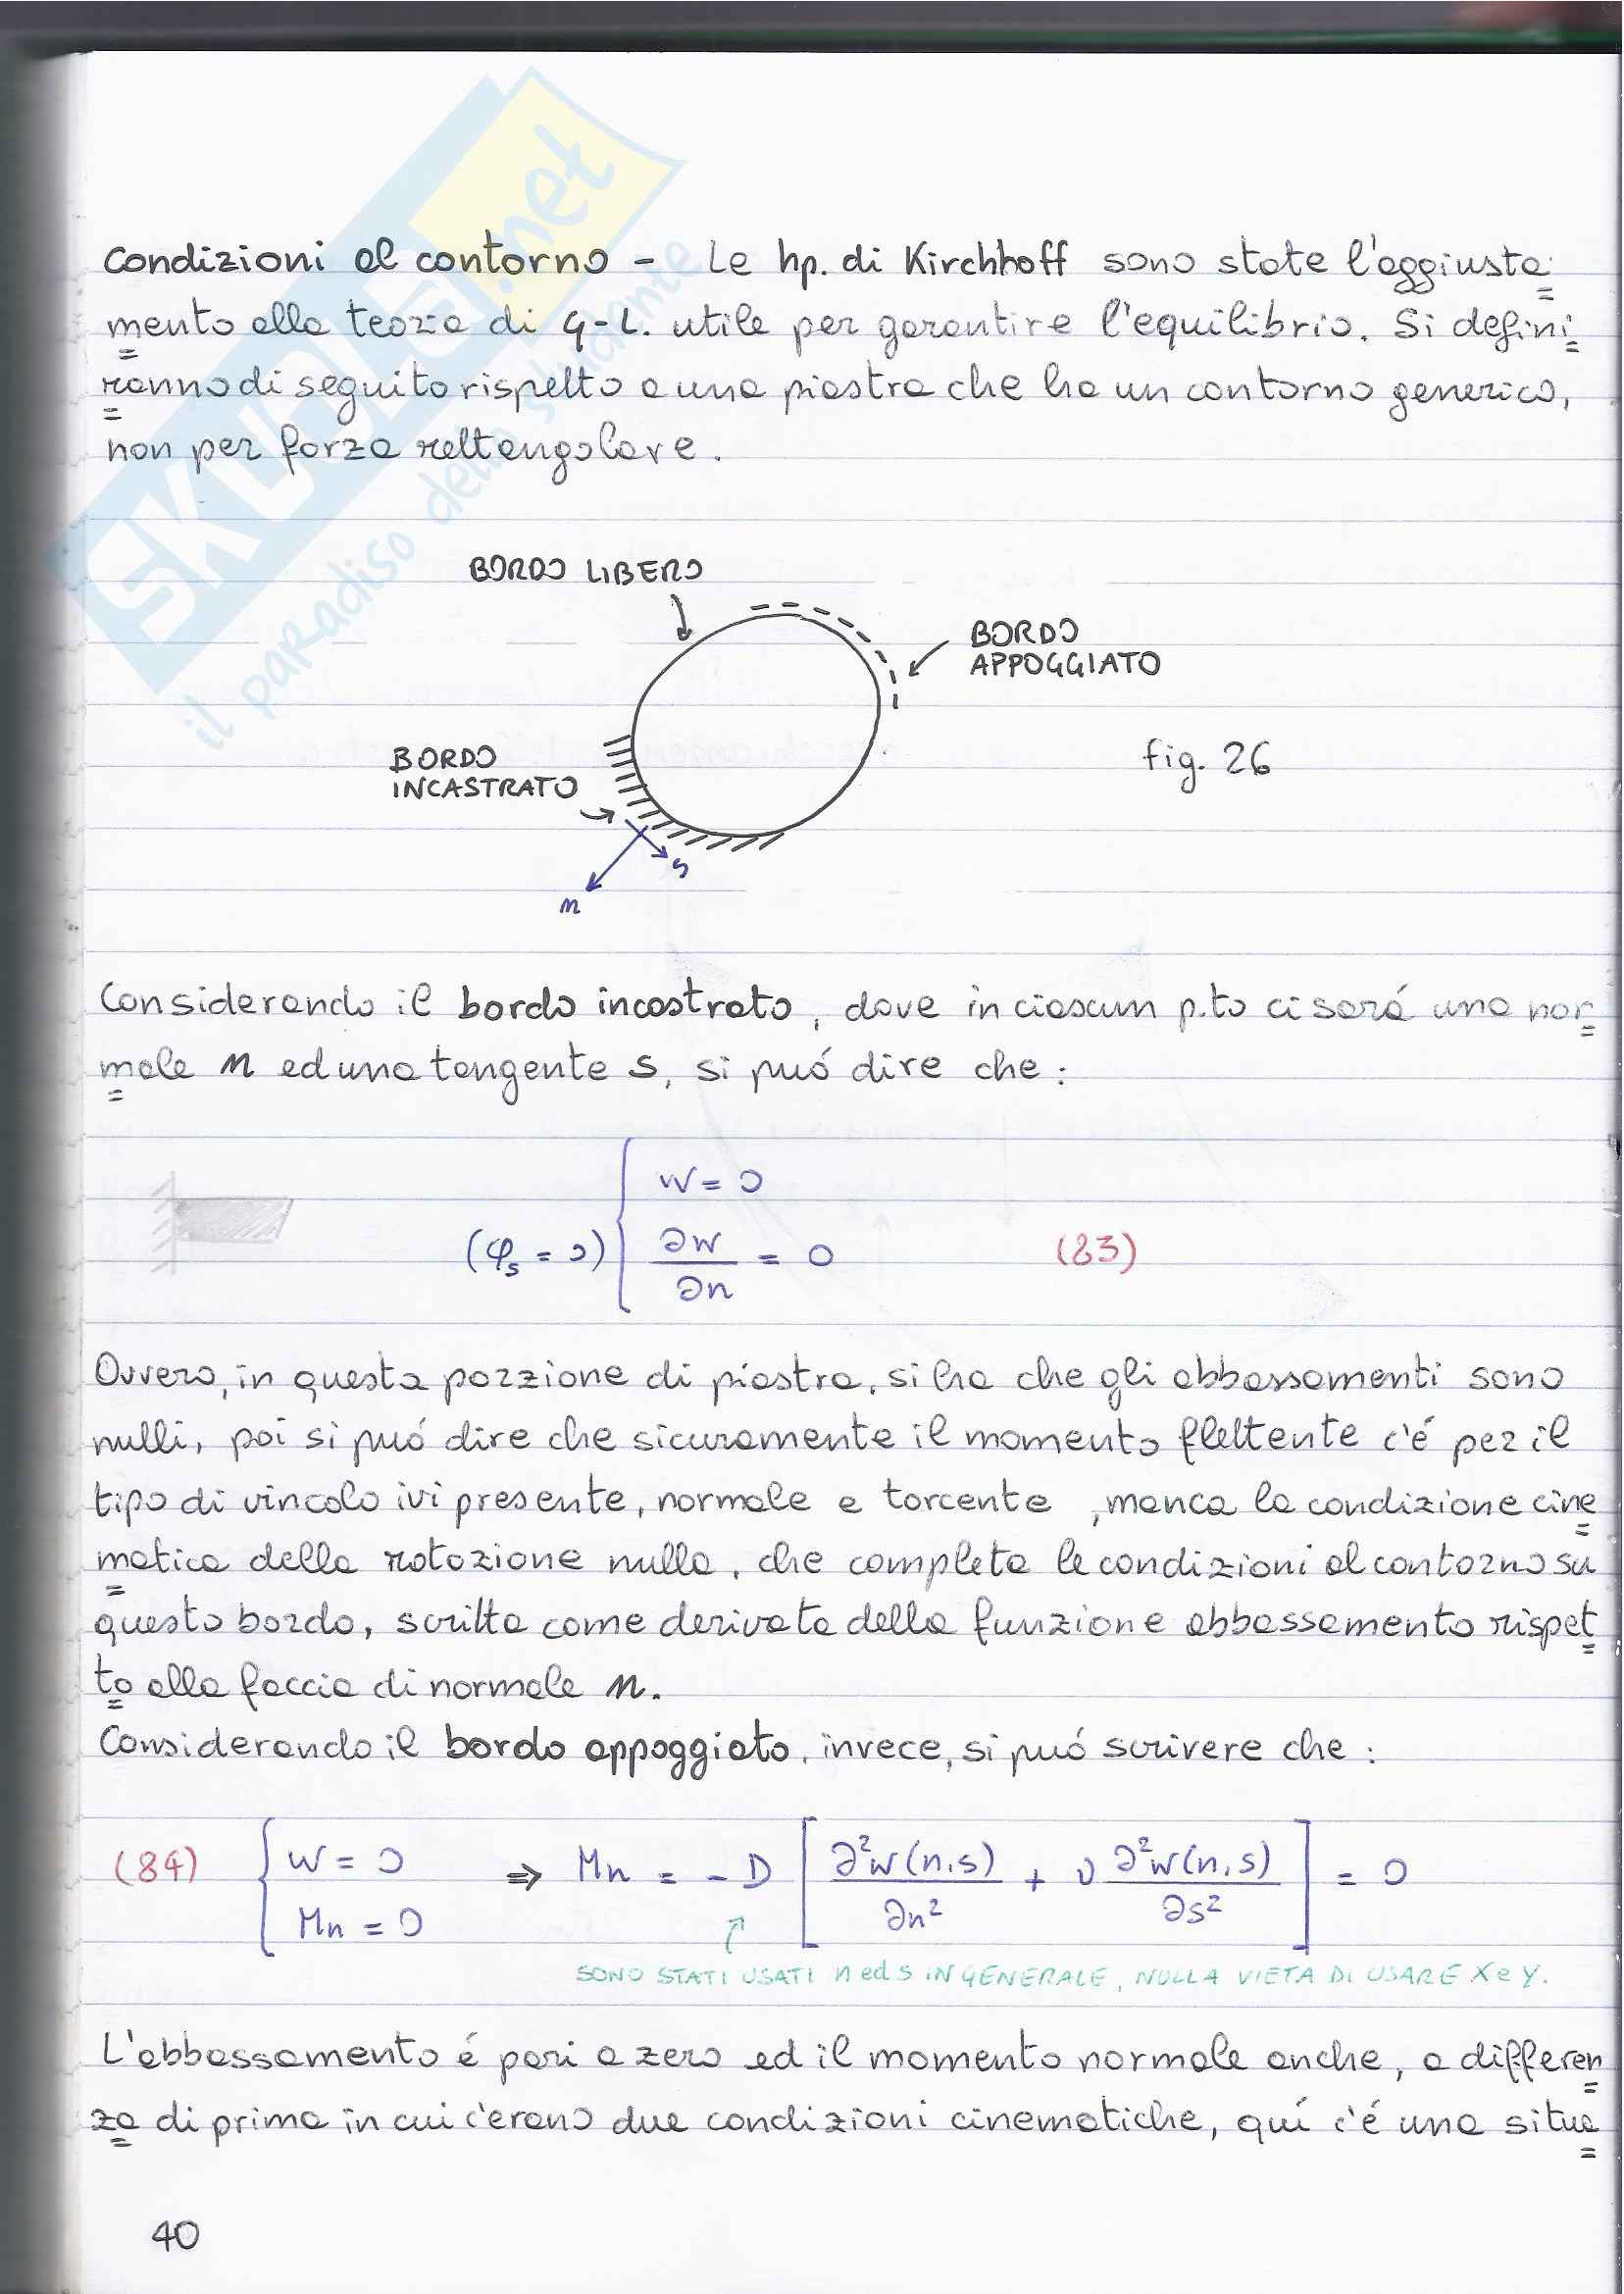 SKUOLA.net
il paradiso dello studente
Condizioni al contorno - Le hp. di Kirchhoff sono state l'aggiusta
mento alla teoria di G-L. utile per garantire l'equilibrio. Si defini
ranno di seguito rispetto a una piastra che ha un contorno generico,
non per forza rettangolare.
BORDO LIBERO
BORDO
APPOGGIATO
BORDO
INCASTRATO
fig. 26
s
n
Considerando il bordo incastrato, dove in ciascun p.to ci sará una nor
male n ed una tangente s, si puó dire che:
w = 0
(φs = 0) ∂w/∂n = 0 (83)
Ovvero, in questa porzione di piastra, si ha che gli abbassamenti sono
nulli, poi si puó dire che sicuramente il momento flettente c'é per il
tipo di vincolo ivi presente, normale e torcente, manca la condizione cine
matica della rotazione nulla, che completa le condizioni al contorno su
questo bordo, scritta come derivata della funzione abbassamento rispet
to alla faccia di normale n.
Considerando il bordo appoggiato, invece, si puó scrivere che:
(84) { w = 0 ⇒ Mn = - D [ ∂²w(n,s)/∂n² + ν ∂²w(n,s)/∂s² ] = 0
Mn = 0
SONO STATI USATI n ed s IN GENERALE, NULLA VIETA DI USARE X e Y.
L'abbassamento é pari a zero ed il momento normale anche, a differen
za di prima in cui c'erano due condizioni cinematiche, quí c'é una situa
40